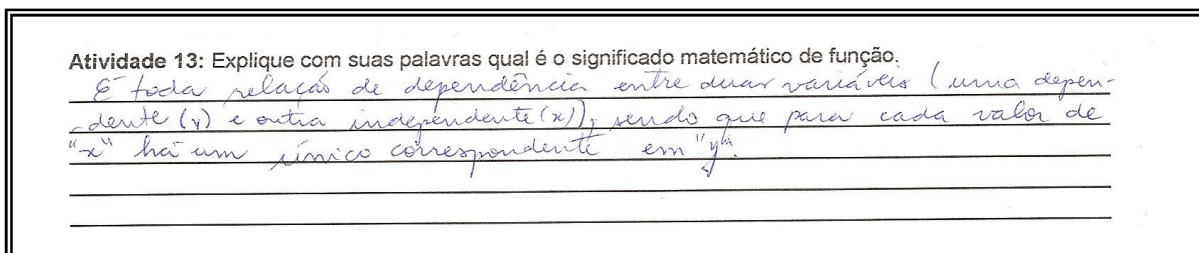 Atividade 13: Explique com suas palavras qual é o significado matemático de função.
É toda relação de dependência entre duas variáveis (uma depen-
dente (y) e outra independente (x)), sendo que para cada valor de
"x" há um único correspondente em "y".